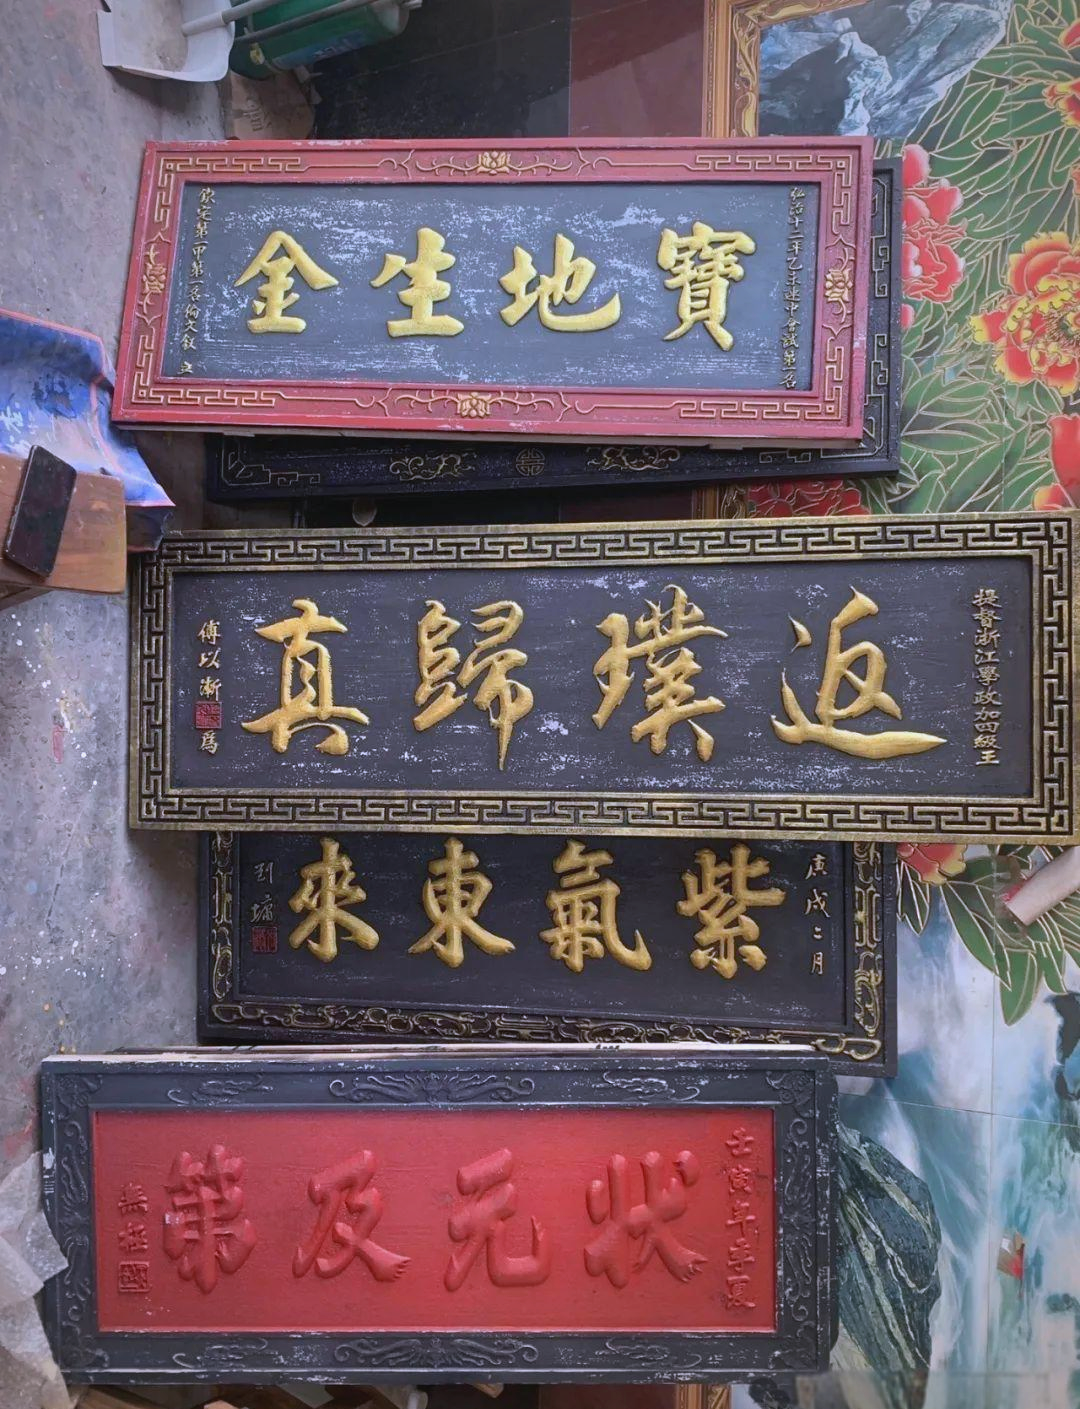 弘治十二年乙未連中會試第一名
寶地生金
欽定第一甲第一名倫文敘 立
提督浙江學政加四級王
返璞歸真
傅以漸 為
庚戌二月
紫氣東來
劉墉
壬寅年季夏
狀元及第
無極